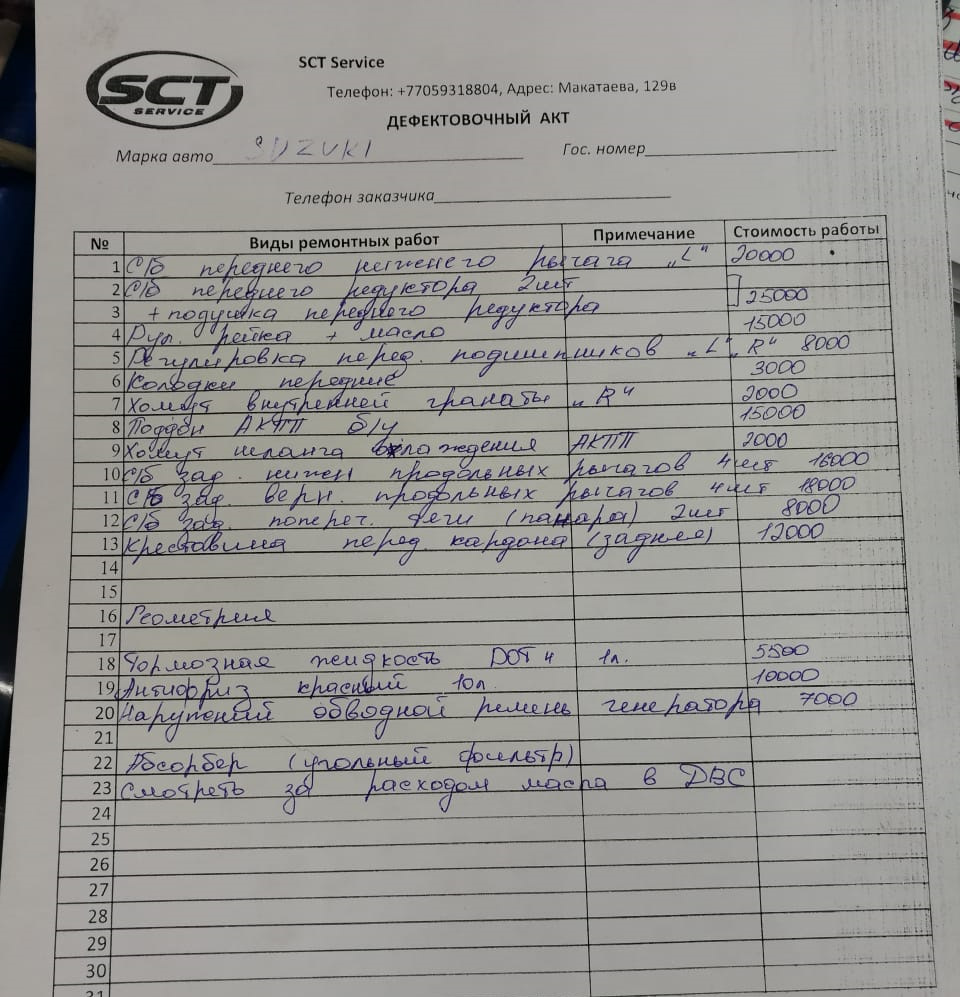 SCT
SERVICE
SCT Service
Телефон: +77059318804, Адрес: Макатаева, 129в
ДЕФЕКТОВОЧНЫЙ АКТ
Марка авто SUZUKI Гос. номер
Телефон заказчика
№ Виды ремонтных работ Примечание Стоимость работы
1 С/б переднего нижнего рычага „L“ 20000
2 С/б переднего редуктора 2шт
3 + подушка переднего редуктора 25000
4 Рул. рейка + масло 15000
5 Регулировка перед. подшипников „L“ „R“ 8000
6 Колодки передние 3000
7 Хомут внутренней гранаты „R“ 2000
8 Поддон АКПП б/у 15000
9 Хомут шланга охлаждения АКПП 2000
10 С/б зад. нижн продольных рычагов 4шт 16000
11 С/б зад. верн. продольных рычагов 4шт 18000
12 С/б зад. попереч. тяги (панара) 2шт 8000
13 Крестовина перед. кардона (задняя) 12000
14
15
16 Геометрия
17
18 Тормозная жидкость DOT 4 1л. 5500
19 Антифриз красный 10л. 10000
20 Наружний обводной ремень генератора 7000
21
22 Абсорбер (угольный фильтр)
23 Смотреть за расходом масла в ДВС
24
25
26
27
28
29
30
31